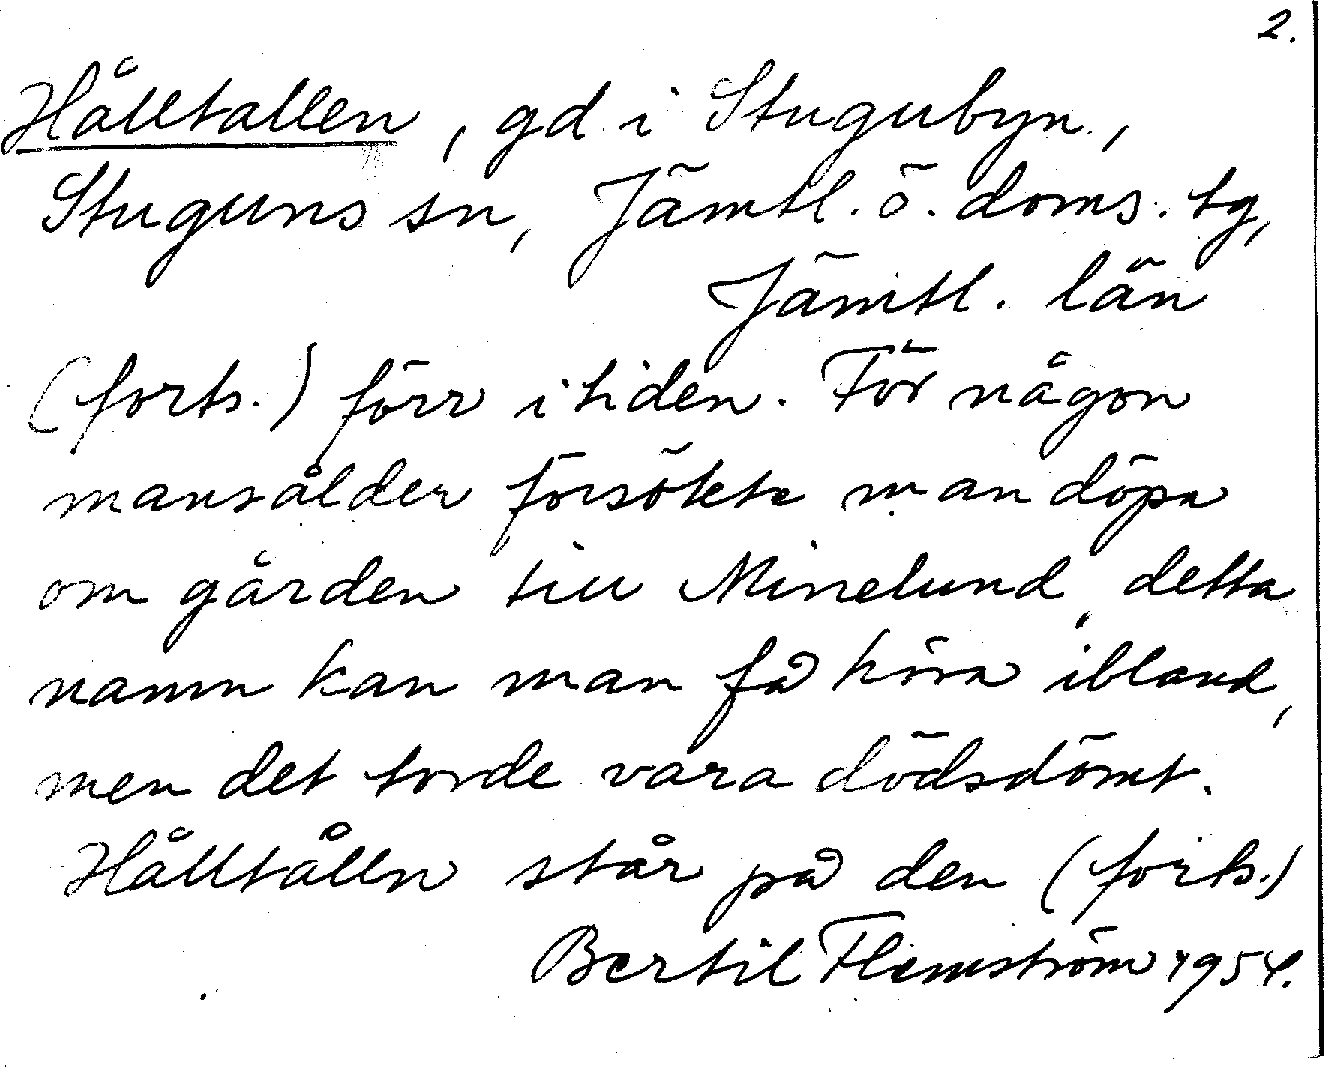 2.
Hålltallen, gd i Stugubyn,
Stuguns sn, Jämtl. ö. doms. tg,
Jämtl. län
(forts.) förr i tiden. För någon
mansålder försökte man döpa
om gården till Minelund, detta
namn kan man få höra ibland,
men det torde vara dödsdömt.
Hålltålln står på den (forts.)
Bertil Flemström 1954.